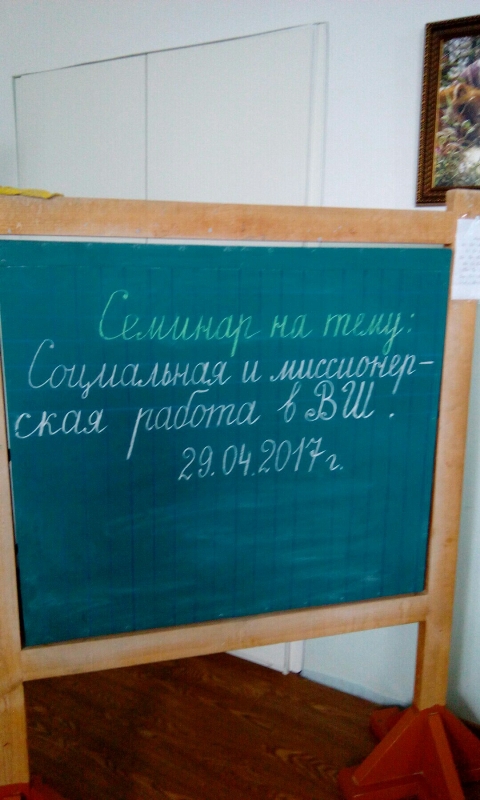 Семинар на тему:
Социальная и миссионер-
ская работа в ВШ.
29.04.2017г.